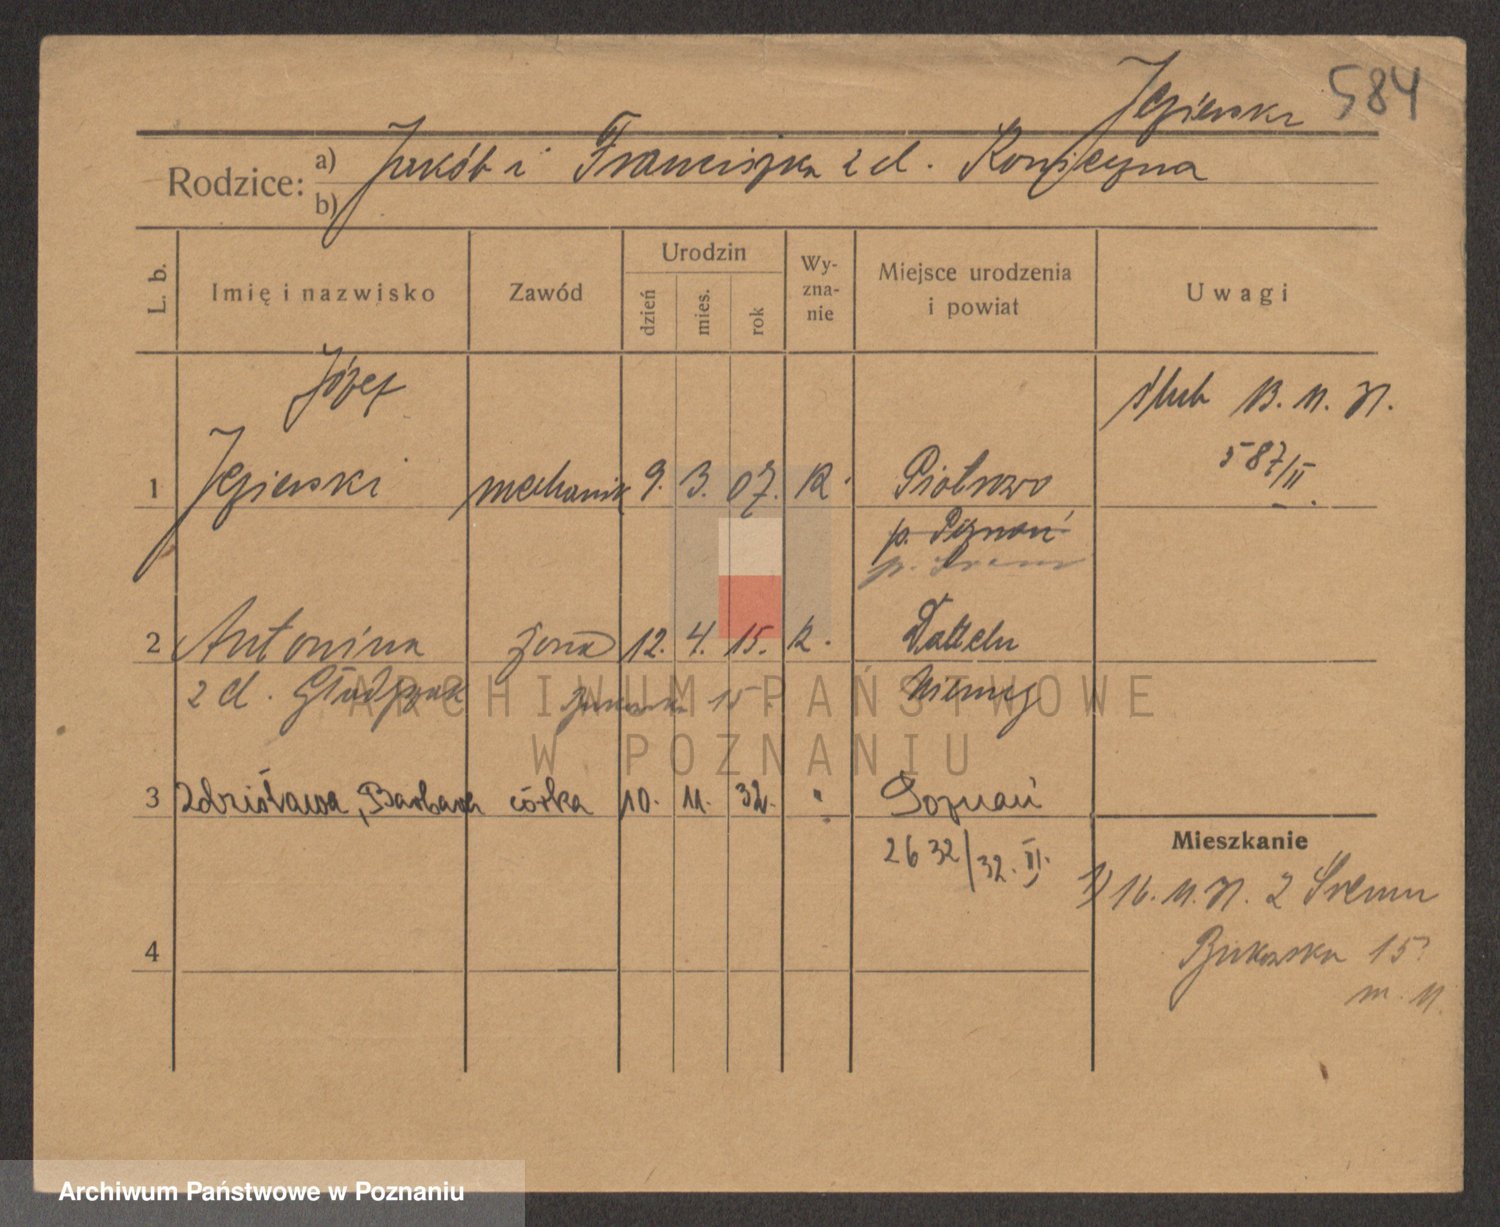 Jezierski 584
Rodzice: a) Jakób i Franciszka z d. Konieczna
b)
L. b. Imię i nazwisko Zawód Urodzin dzień mies. rok Wy-zna-nie Miejsce urodzenia i powiat Uwagi
Józef ślub
1 Jezierski mechanik 9. 3. 07. R. Piotrowo 587/II
p. Poznań
p. Śrem
2 Antonina żona 12. 4. 15. R. Datteln
z d. 15. Niemcy
3 Zdzisława, Barbara córka 10. 11. 32. " Poznań
2632/32. II.
Mieszkanie
1) z Śremu
4 Bukowska 15
m. 11
ARCHIWUM PAŃSTWOWE
W POZNANIU
Archiwum Państwowe w Poznaniu